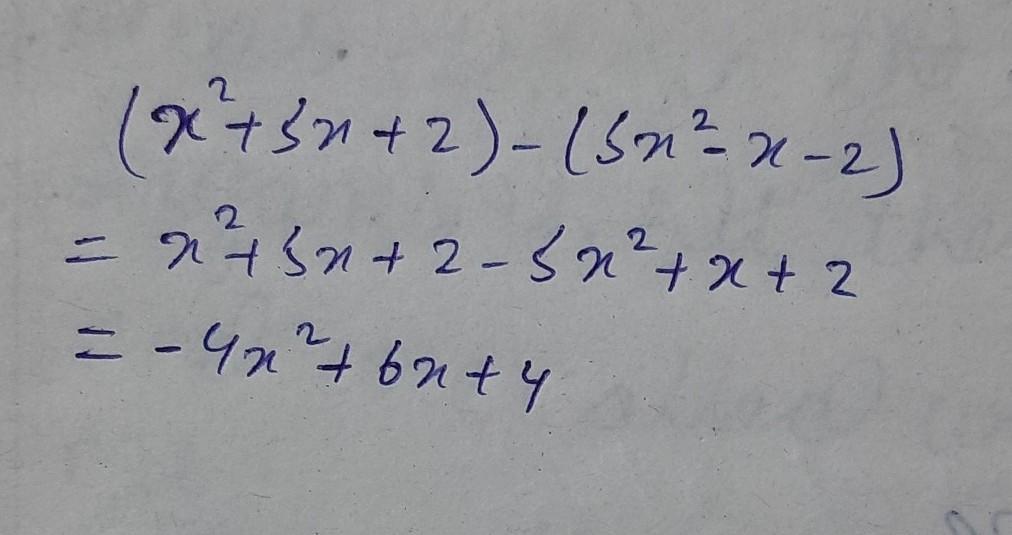 (x²+5x+2)-(5x²-x-2)
= x²+5x+2-5x²+x+2
= -4x²+6x+4